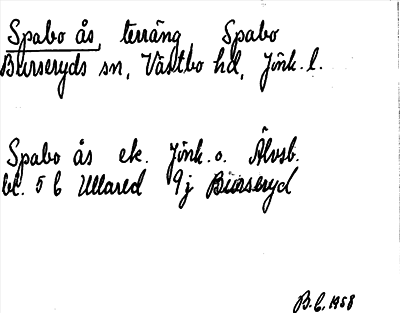 Spabo ås, terräng Spabo
Burseryds sn, Västbo hd, Jönk. l.
Spabo ås ek. Jönk. o. Älvsb.
bl. 5 C Ullared 9j Burseryd
B.C. 1958